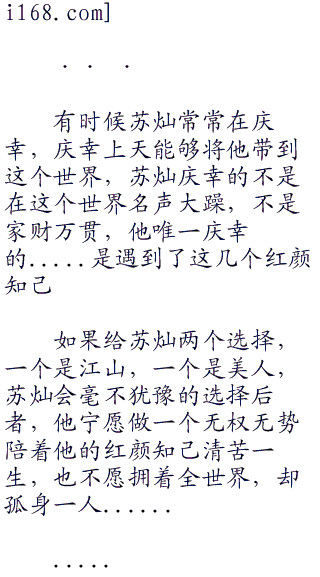 i168.com]
. . .
有时候苏灿常常在庆
幸，庆幸上天能够将他带到
这个世界，苏灿庆幸的不是
在这个世界名声大躁，不是
家财万贯，他唯一庆幸
的.....是遇到了这几个红颜
知己
如果给苏灿两个选择，
一个是江山，一个是美人，
苏灿会毫不犹豫的选择后
者，他宁愿做一个无权无势
陪着他的红颜知己清苦一
生，也不愿拥着全世界，却
孤身一人......
.....